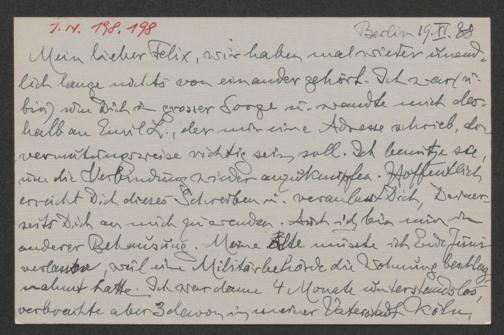 I.N. 198.198
Berlin 19.XI.88
Mein lieber Felix, wir haben mal wieder unend-
lich lange nichts von einander gehört. Ich war (u.
bin) um Dich in grosser Sorge u. wandte mich des-
halb an Emil L., der mir eine Adresse schrieb, die
vermutungsweise richtig sein soll. Ich benutze sie,
um die Verbindung wieder anzuknüpfen. Hoffentlich
erreicht Dich dieses Schreiben u. veranlasst Dich, Deiner-
seits Dich an mich zu wenden. Auch ich bin nun in
anderer Behausung. Meine Alte musste ich Ende Juni
verlassen, weil eine Militärbehörde die Wohnung beschlag-
nahmt hatte. Ich war dann 4 Monate unterstandslos,
verbrachte aber 3 davon in meiner Vaterstadt Köln,